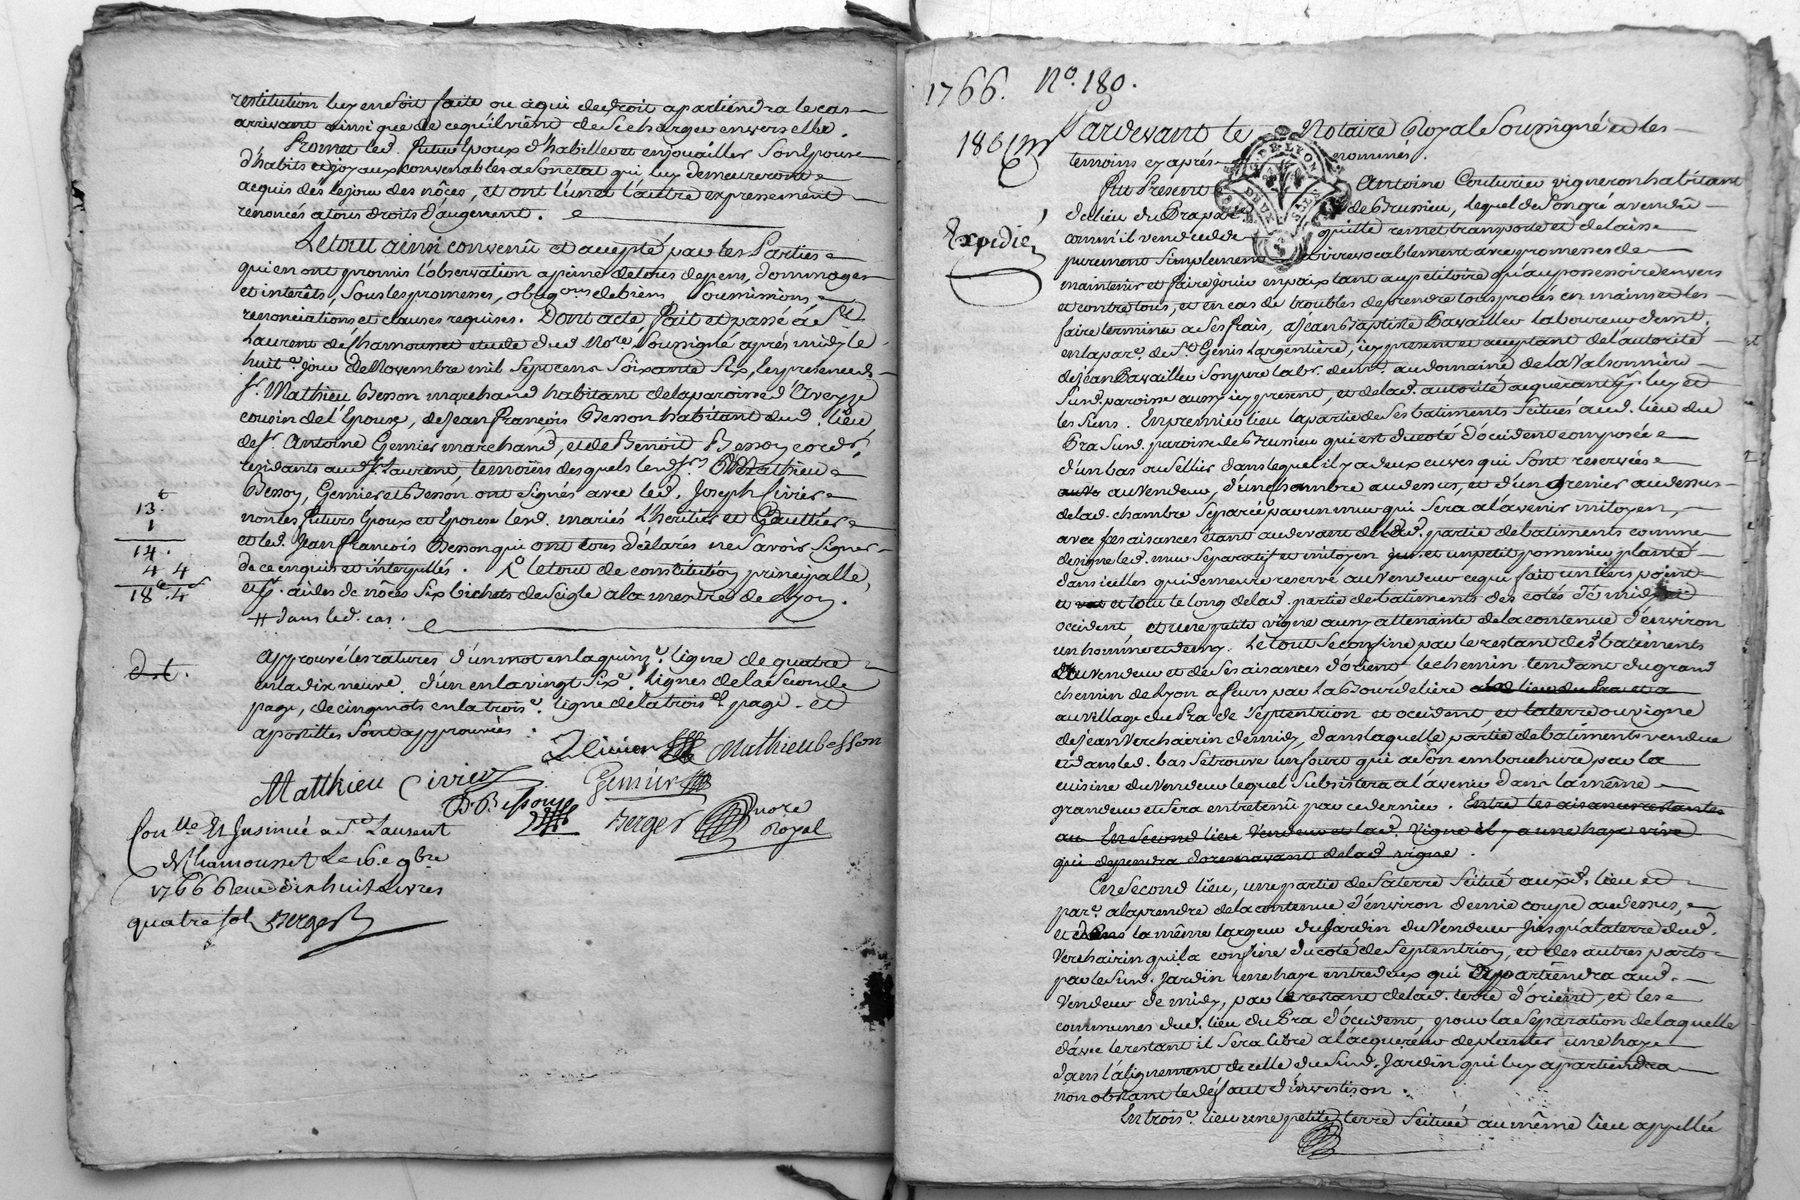 restitution luy en soit faite ou a qui de droit apartiendra le cas
arrivant ainsi que de ce qu'il vient de se charger envers elle.
Promet led. futur Epoux d'habiller et enjouailler son Epouse
d'habits et joyaux convenables a son etat qui luy demeureront
acquis dès le jour des nôces, et ont l'un et l'autre expressement
renoncés a tous droits d'augement.
Le tout ainsi convenû et accepté par les Parties
qui en ont promis l'observation a peine de tous depens, dommages
et interêts, sous les promesses, obligons de biens soumissions,
renonciations et clauses requises. Dont acte fait et passé à St
Laurent de Chamousset etude dud Nore soussigné aprés midy le
huite jour de Novembre mil sept cens soixante six, les presence de
sr. Mathieu Besson marchand habitant de la paroisse d'Aveyze
cousin de l'Epoux, de Jean françois Besson habitant dud. lieu
de sr Antoine Gemier marchand, et de Benoit Besson
residants aud St Laurent, temoins desquels lesd srs Mathieu
Besson, Gemier et Besson ont signés avec led. Joseph Civier
non les futurs Epoux et Epouse lesd. mariés L'heritier et Gaultier
et led. Jean françois Besson qui ont tous déclarés ne savoir signer
de ce enquis et interpellés. le tout de constitution principalle,
et aides de nôces six bichets de seigle a la mesure de Lyon.
# dans led. cas.
13.t
1
14.
4 4
18 4s
approuvé les ratures d'un mot en la quinze ligne de quatre
en la dix neuve. d'un en la vingt sixe. lignes de la seconde
page, de cinq mots en la troise. ligne de la troise page. et
apostilles sont approuvées.
Civier Mathieu besson
Matthieu Civier Gemier
B. Besson Berger nore Royal
Conlle Et Insinué a St Laurent
de Chamousset Le 16. e 9bre
1766 Recu dix huit Livres
quatre sol Berger
1766. No. 180.
Expedié
Pardevant le Notaire Royal soussigné et les
temoins cy aprés nommés.
Fut Present Antoine Couturier vigneron habitant
du lieu du Pra paroisse de Brussieu, lequel de son gré a vendû
comm'il vend cedde quitte remet transporte et delaisse
purement simplement et irrevocablement avec promesses de
maintenir et faire jouir en paix tant au petitoire qu'au possessoire envers
et contre tous, et en cas de troubles de prendre tous procés en mains et les
faire terminer a ses frais, a Jean Baptiste Bavaillier laboureur demt.
en la pare. de St. Genis Largentière, icy present et acceptant de l'autorité
de Jean Bavaillier son pere labr. demt. au domaine de la Valsonnière
susd. paroisse aussy icy present, et de lad. autorité acquerant pr. luy et
les siens. En premier lieu la partie de ses batiments scitués aud. lieu du
Pra susd. paroisse de Brussieu qui est du coté d'occident composée
d'un bas ou sellier dans lequel il y a deux cuves qui sont reservées
au vendeur, d'une chambre au dessus, et d'un grenier au dessus
de lad. chambre separée par un mur qui sera a l'avenir mitoyen,
avec ses aisances etant au devant de lad. partie de batiments comme
designe led. mur separatif et mitoyen et un petit pommier planté
dans icelles qui demeure reservé au vendeur ce qui fait un tiers point
et tout le long de lad. partie de batiments des cotés de midy et
occident et une petite vigne aussy attenante de la contenue d'environ
un homme et demy. Le tout se confine par le restant desd batiments
du vendeur et de ses aisances d'orient le chemin tendant du grand
chemin de Lyon a feurs par La Bourdeliere a lad lieu du Pra et a
au village du Pra de septentrion et occident, et la terre ou vigne
de Jean Verchairin de midy, dans laquelle partie de batiments vendue
et dans led. bas se trouve un four qui a son embouchure par la
cuisine du vendeur lequel subsistera a l'avenir dans la même
grandeur et sera entretenû par ce dernier. Entre les aisances restantes
au En second lieu vendeur et lad. vigne il y a une haye vive
qui dependra doresnavant de lad vigne.
En second lieu, une partie de sa terre scitué auxd. lieu et
pare. a la prendre de la contenue d'environ demie coupe au dessus,
et dans la même largeur du Jardin du vendeur jusqu'a la terre dud.
Verchairin qui la confine du coté de septentrion, et des autres parts
par le susd. Jardin une haye entre deux qui apartiendra aud.
Vendeur de midy, par le restant de lad. terre d'orient, et les
communes dud. lieu du Pra d'occident, pour la separation de laquelle
d'avec le restant il sera libre a l'acquereur de planter une haye
dans l'alignement de celle du susd. Jardin qui luy apartiendra
non obstant le defaut d'investison.
En troise. lieu une petite terre scituée au même lieu appellée